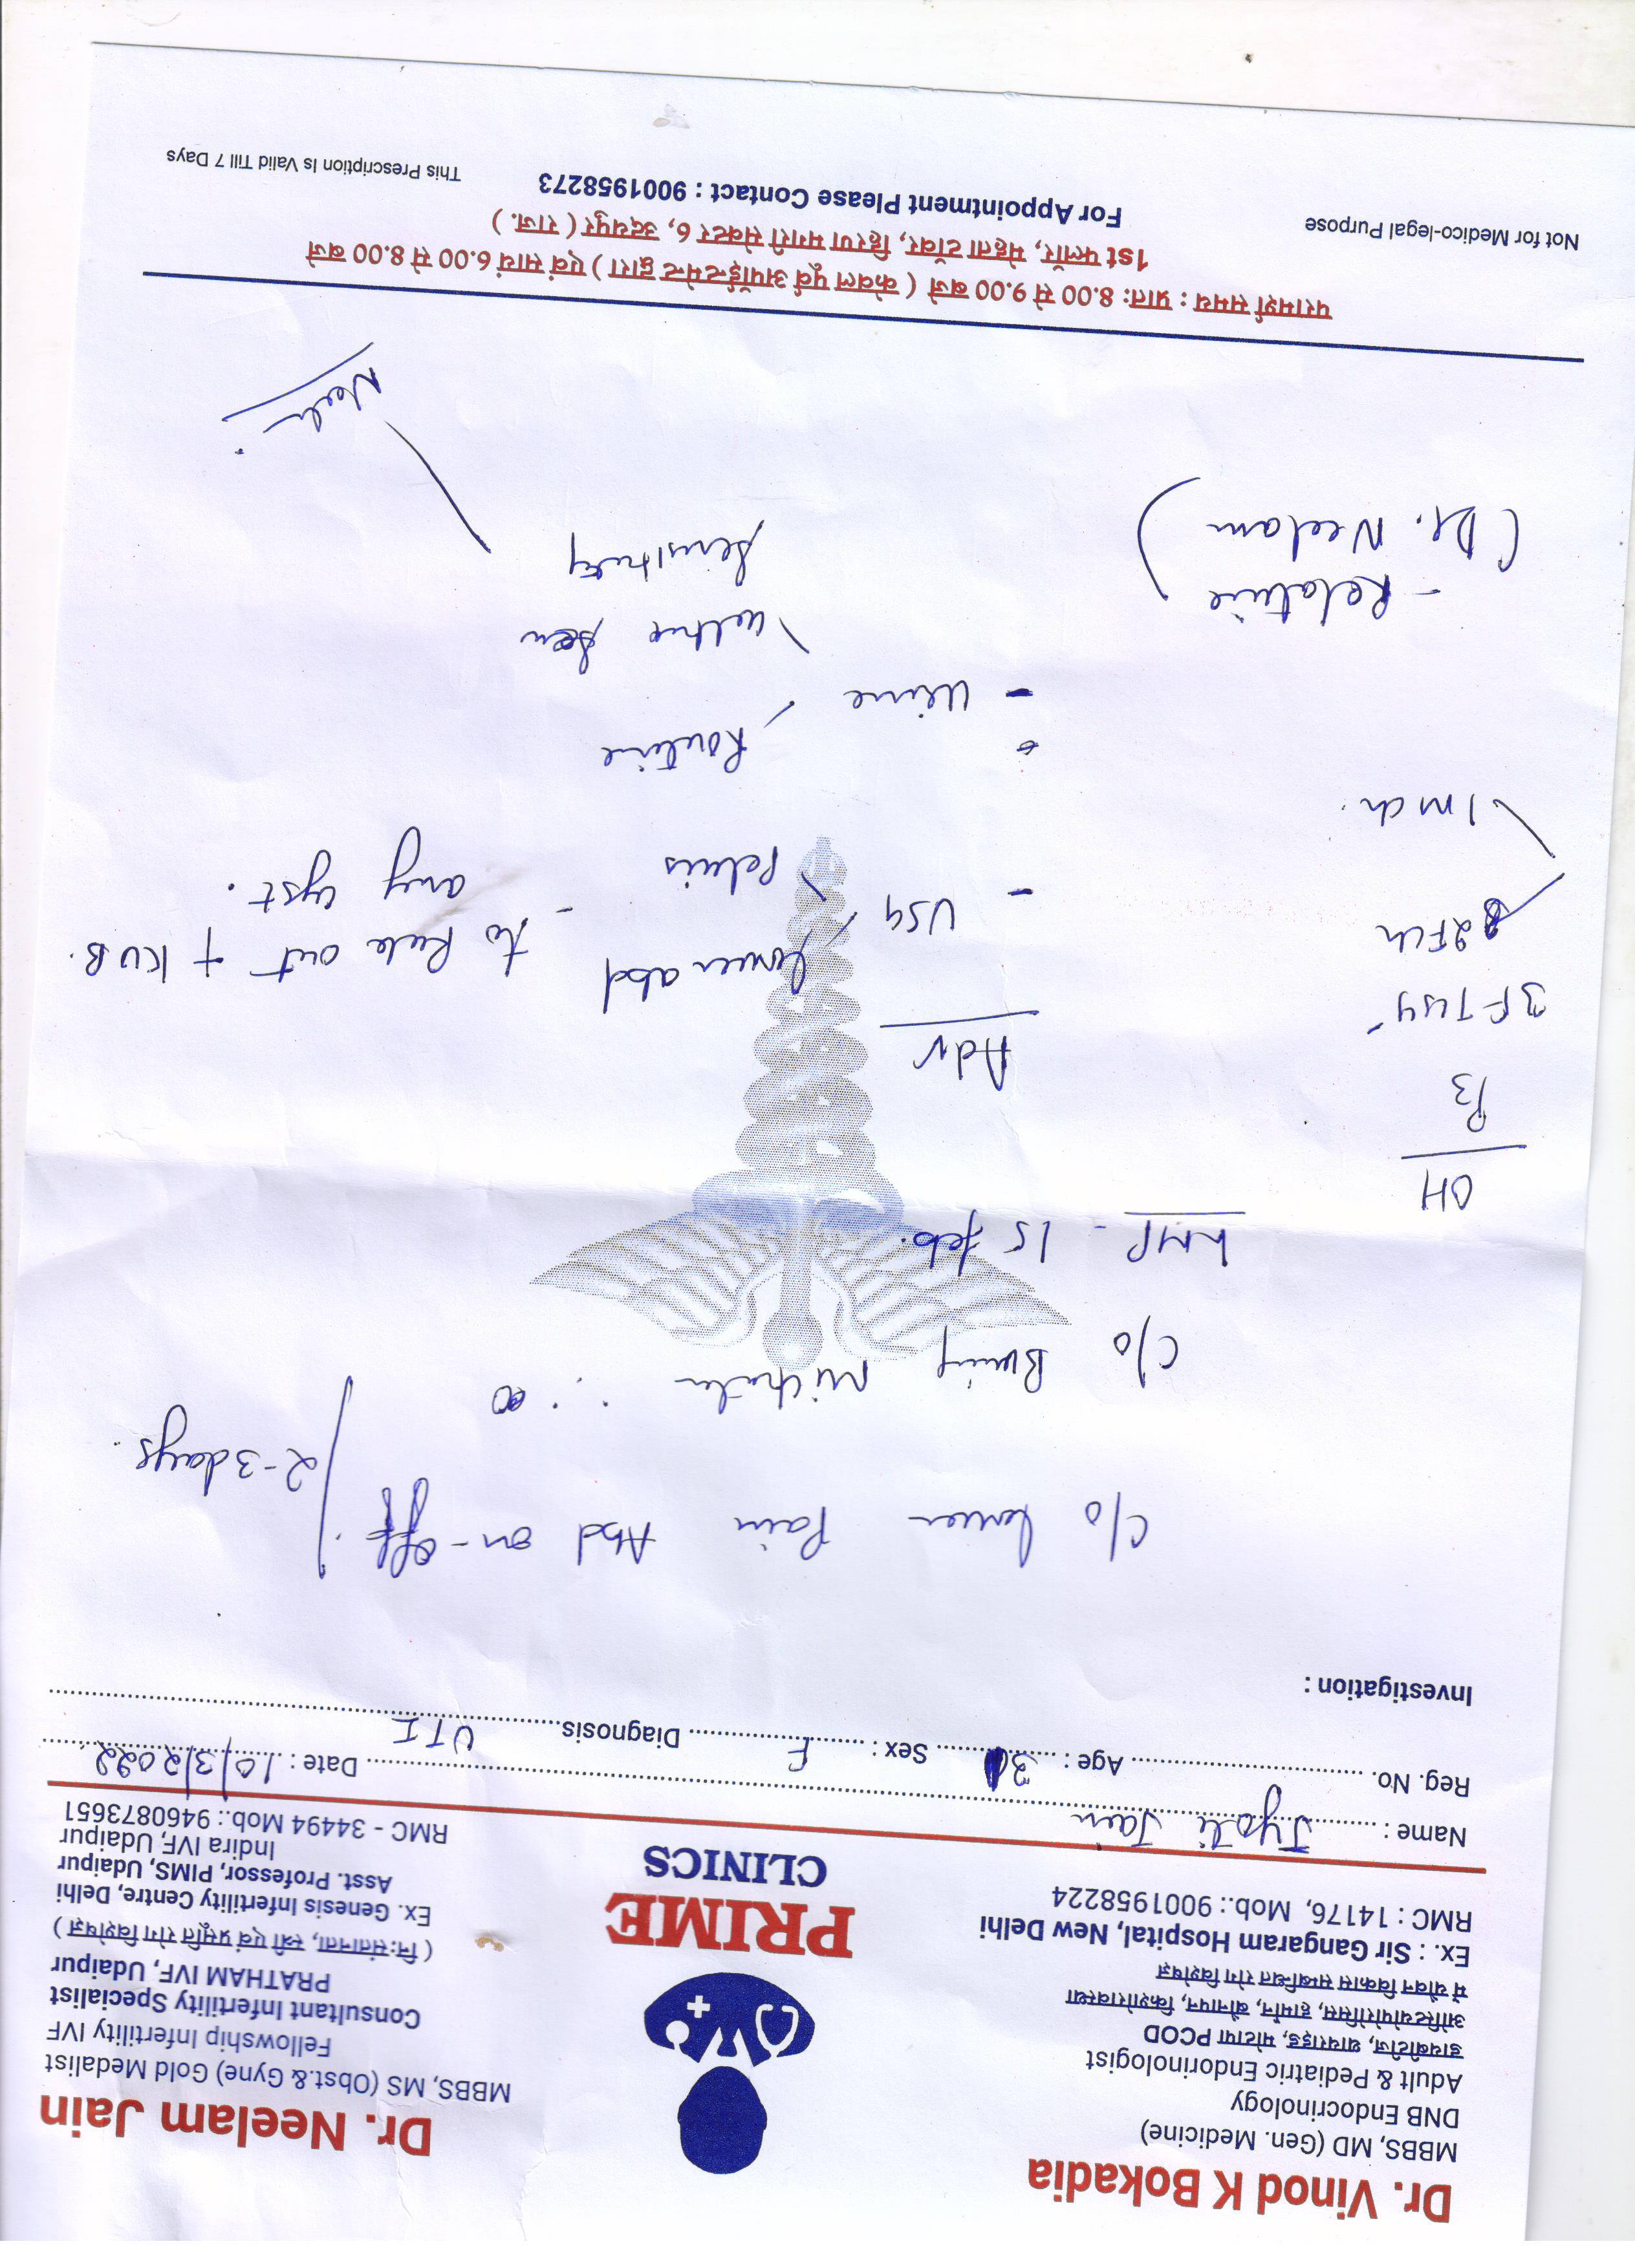 Dr. Vinod K Bokadia
MBBS, MD (Gen. Medicine)
DNB Endocrinology
Adult & Pediatric Endocrinologist
डायबीटीज, थायराइड, मोटापा PCOD
ऑस्टियोपोरोसिस, हार्मोन, बौनापन, किशोरावस्था
में यौवन विकास सम्बन्धित रोग विशेषज्ञ
Ex. : Sir Gangaram Hospital, New Delhi
RMC : 14176, Mob.: 9001958224
PRIME
CLINICS
Dr. Neelam Jain
MBBS, MS (Obst.& Gyne) Gold Medalist
Fellowship Infertility IVF
Consultant Infertility Specialist
PRATHAM IVF, Udaipur
( निःसंतानता, स्त्री एवं प्रसूति रोग विशेषज्ञ )
Ex. Genesis Infertility Centre, Delhi
Asst. Professor, PIMS, Udaipur
Indira IVF, Udaipur
RMC - 34494 Mob.: 9460873651
Name : Jyoti Jain Date : 10/3/2022
Reg. No. Age : 31 Sex : F Diagnosis. UTI
Investigation :
c/o lower Pain Abd on-off
2-3days.
c/o Burning
LMP - 15 feb.
OH
P3
3FT
2Fch
1mch.
Adv
- USG lower abd
Pelvis
- to Rule out + KUB.
any cyst.
- Urine Routine
- Relative
(Dr. Neelam)
परामर्श समय : प्रातः 8.00 से 9.00 बजे ( केवल पूर्व अपॉईन्टमेन्ट द्वारा ) एवं सायं 6.00 से 8.00 बजे
1st फ्लोर, मेहता टॉवर, हिरण मगरी सेक्टर 6, उदयपुर ( राज. )
Not for Medico-legal Purpose
For Appointment Please Contact : 9001958273
This Prescription Is Valid Till 7 Days